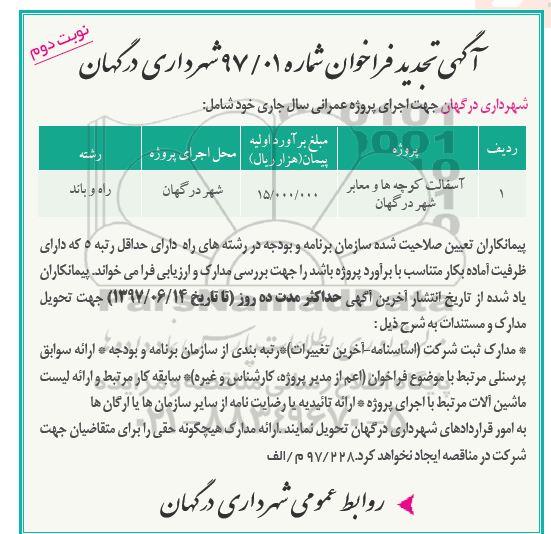 نوبت دوم
آگهی تجدید فراخوان شماره ۹۷/۰۱ شهرداری درگهان
شهرداری درگهان جهت اجرای پروژه عمرانی سال جاری خود شامل:
ردیف پروژه مبلغ برآورد اولیه پیمان(هزار ریال) محل اجرای پروژه رشته
۱ آسفالت کوچه ها و معابر شهر درگهان ۱۵/۰۰۰/۰۰۰ شهر درگهان راه و باند
پیمانکاران تعیین صلاحیت شده سازمان برنامه و بودجه در رشته های راه دارای حداقل رتبه ۵ که دارای
ظرفیت آماده بکار متناسب با برآورد پروژه باشد را جهت بررسی مدارک و ارزیابی فرا می خواند. پیمانکاران
یاد شده از تاریخ انتشار آخرین آگهی حداکثر مدت ده روز (تا تاریخ ۱۳۹۷/۰۶/۱۴) جهت تحویل
مدارک و مستندات به شرح ذیل :
* مدارک ثبت شرکت (اساسنامه-آخرین تغییرات)*رتبه بندی از سازمان برنامه و بودجه * ارائه سوابق
پرسنلی مرتبط با موضوع فراخوان (اعم از مدیر پروژه، کارشناس و غیره)* سابقه کار مرتبط و ارائه لیست
ماشین آلات مرتبط با اجرای پروژه * ارائه تائیدیه یا رضایت نامه از سایر سازمان ها یا ارگان ها
به امور قراردادهای شهرداری درگهان تحویل نمایند .ارائه مدارک هیچگونه حقی را برای متقاضیان جهت
شرکت در مناقصه ایجاد نخواهد کرد.۹۷/۲۲۸ م/الف
روابط عمومی شهرداری درگهان
ParsNamadData